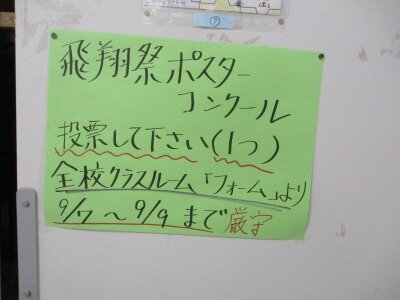 ⑦
飛翔祭ポスター
コンクール
投票して下さい(1つ)
全校クラスルーム「フォーム」より
9/7～9/9まで厳守